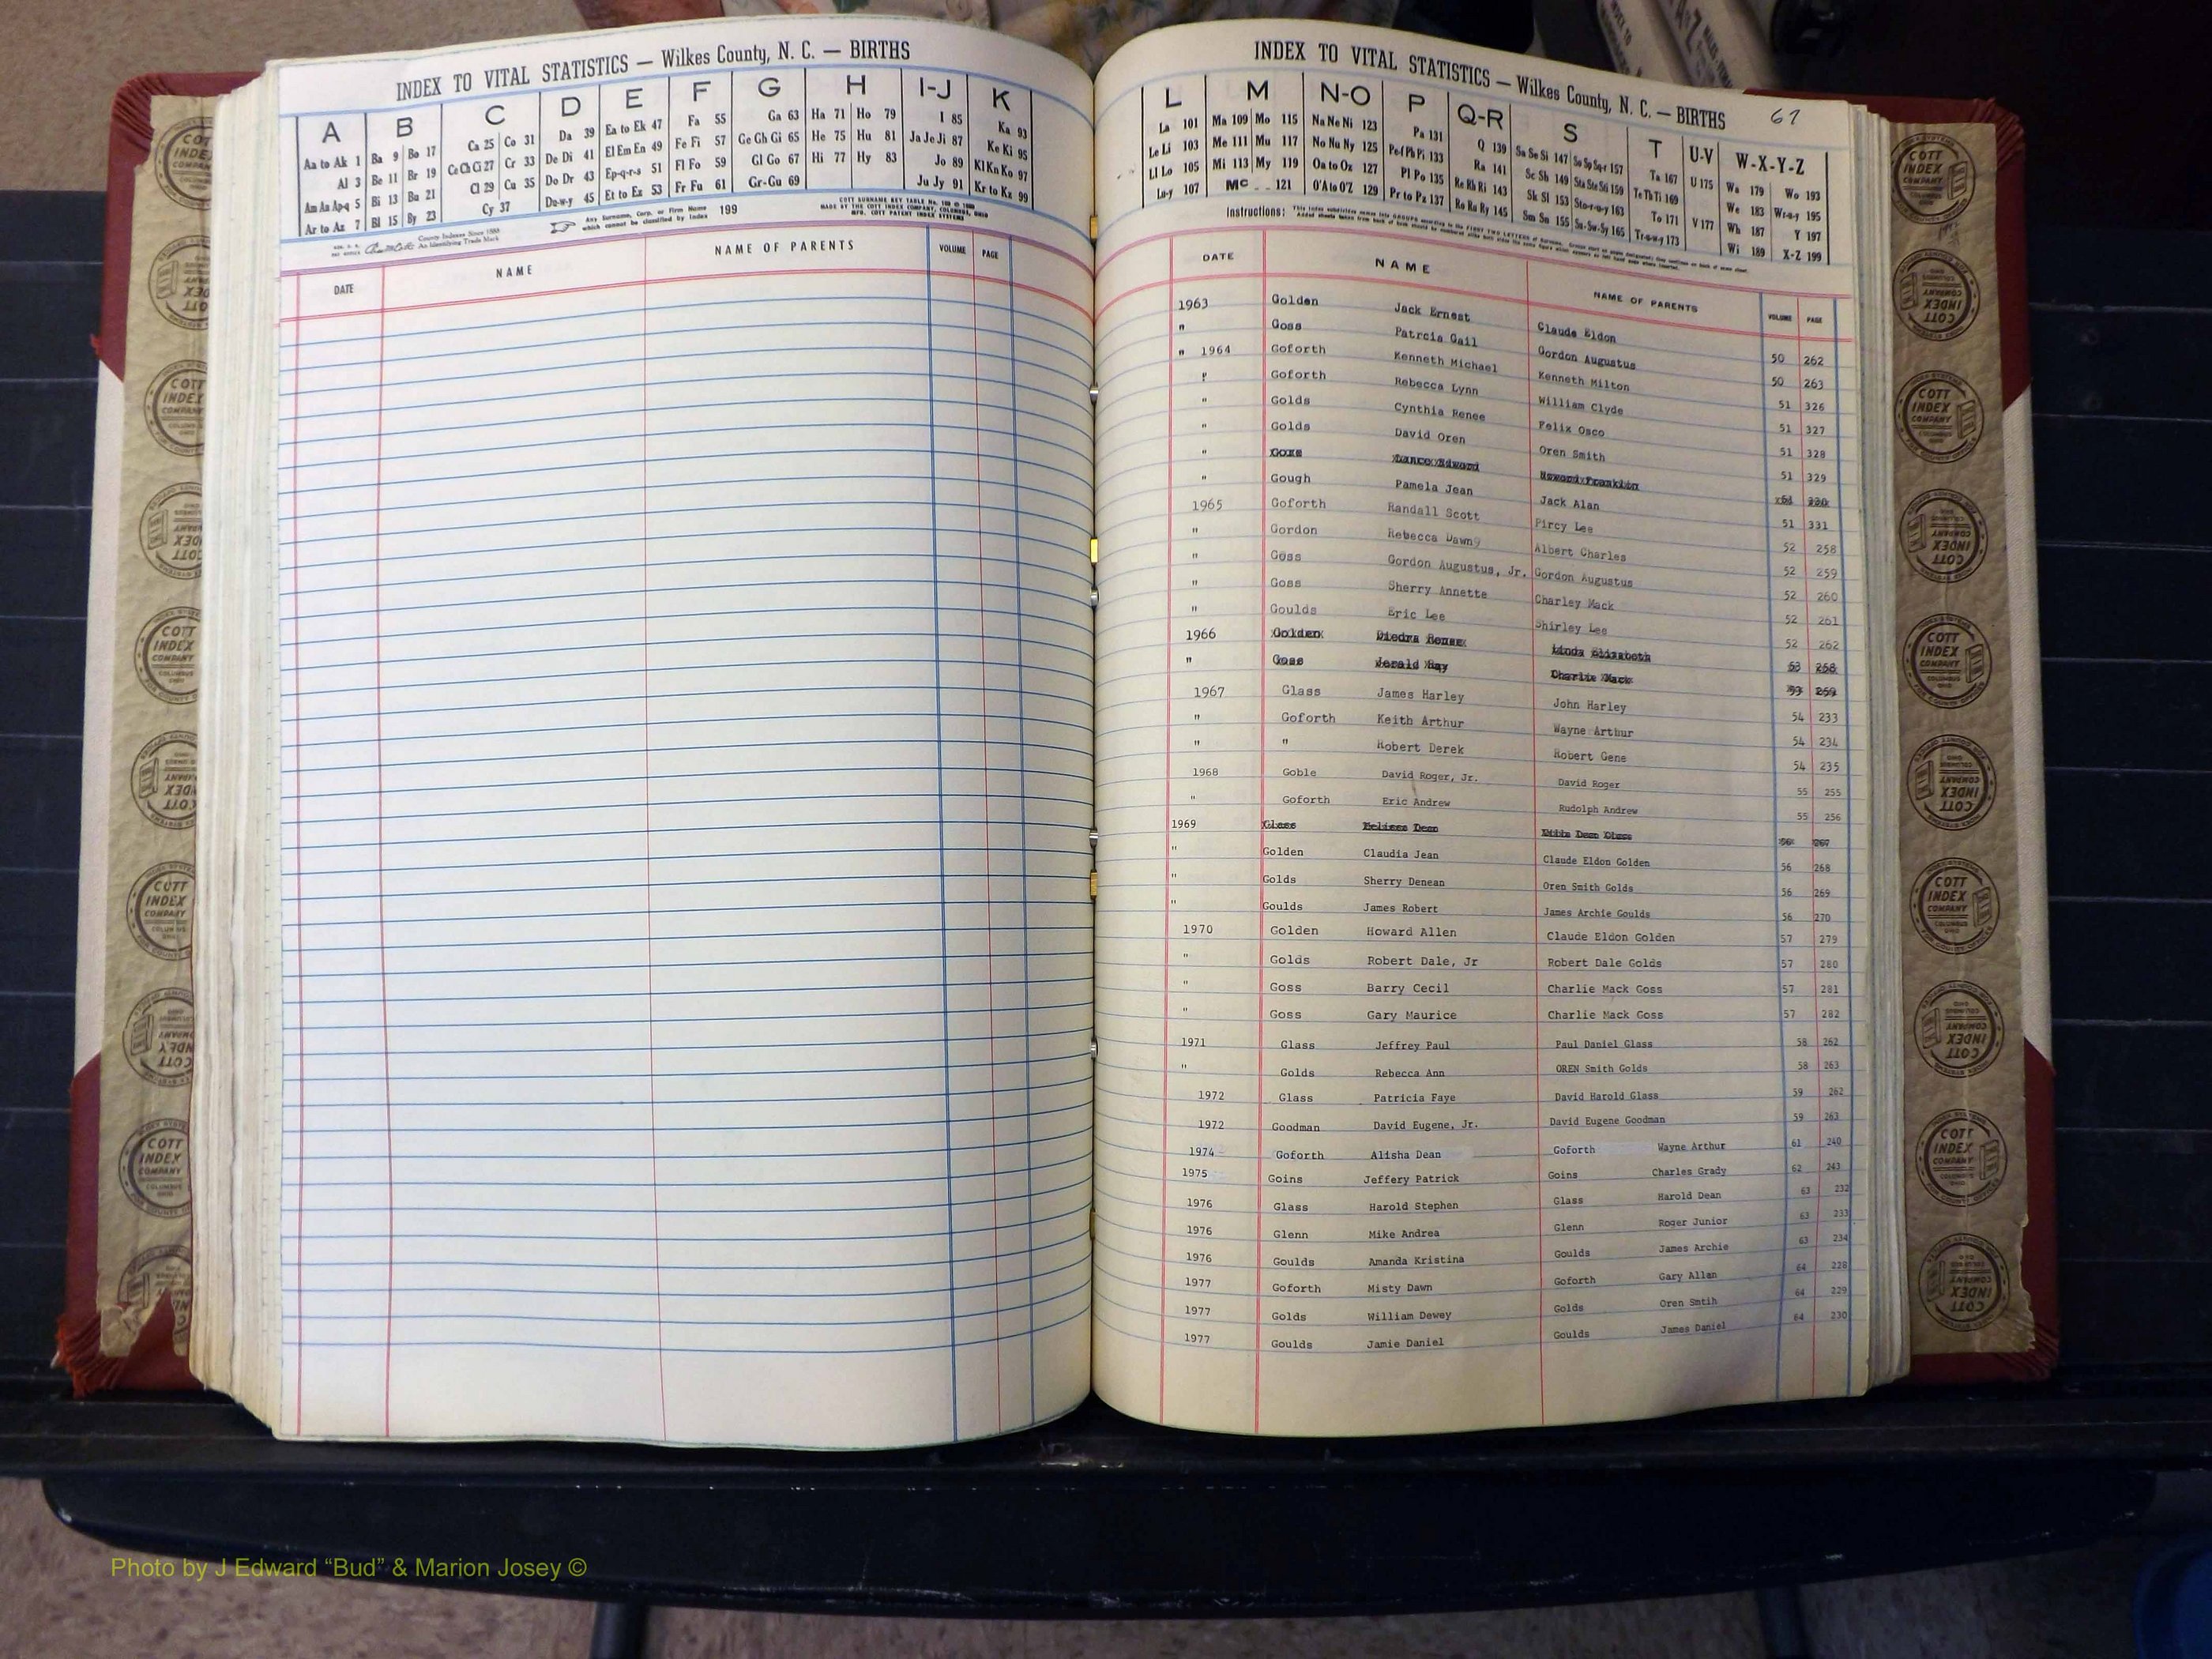 INDEX TO VITAL STATISTICS — Wilkes County, N. C. — BIRTHS
A B C D E F G H I-J K
Aa to Ak 1 Ba 9 Bo 17 Ca 25 Co 31 Da 39 Ea to Ek 47 Fa 55 Ga 63 Ha 71 Ho 79 I 85 Ka 93
Al 3 Be 11 Br 19 Ce Ch Ci 27 Cr 33 De Di 41 El Em En 49 Fe Fi 57 Ge Gh Gi 65 He 75 Hu 81 Ja Je Ji 87 Ke Ki 95
Am An Ap-q 5 Bi 13 Bu 21 Cl 29 Cu 35 Do Dr 43 Ep-q-r-s 51 Fl Fo 59 Gl Go 67 Hi 77 Hy 83 Jo 89 Kl Kn Ko 97
Ar to Az 7 Bl 15 By 23 Cy 37 Du-w-y 45 Et to Ez 53 Fr Fu 61 Gr-Gu 69 Ju Jy 91 Kr to Kz 99
Any Surname, Corp. or Firm Name which cannot be classified by Index 199
County Indexes Since 1888
An Identifying Trade Mark
MADE BY THE COTT INDEX COMPANY, COLUMBUS, OHIO
MFG. COTT PATENT INDEX SYSTEMS
DATE NAME NAME OF PARENTS VOLUME PAGE
INDEX TO VITAL STATISTICS — Wilkes County, N. C. — BIRTHS 67
L M N-O P Q-R S T U-V W-X-Y-Z
La 101 Ma 109 Mo 115 Na Ne Ni 123 Pa 131 Q 139 Sa Se Si 147 So Sp Sq-r 157 Ta 167 U 175 Wa 179 Wo 193
Le Li 103 Me 111 Mu 117 No Nu Ny 125 Pe-f Ph Pi 133 Ra 141 Sc Sh 149 Sta Ste Sti 159 Te Th Ti 169 V 177 We 183 Wr-u-y 195
Ll Lo 105 Mi 113 My 119 Oa to Oz 127 Pl Po 135 Re Rh Ri 143 Sk Sl 153 Sto-r-u-y 163 To 171 Wh 187 Y 197
Lu-y 107 Mc 121 O'A to O'Z 129 Pr to Pz 137 Ro Ru Ry 145 Sm Sn 155 Su-Sw-Sy 165 Tr-u-w-y 173 Wi 189 X-Z 199
Instructions:
DATE NAME NAME OF PARENTS VOLUME PAGE
1963 Golden Jack Ernest Claude Eldon 50 262
" Goss Patrcia Gail Gordon Augustus 50 263
" 1964 Goforth Kenneth Michael Kenneth Milton 51 326
" Goforth Rebecca Lynn William Clyde 51 327
" Golds Cynthia Renee Felix Osco 51 328
" Golds David Oren Oren Smith 51 329
" Lance Edward Howard Franklin 51 330
" Gough Pamela Jean Jack Alan 51 331
1965 Goforth Randall Scott Pircy Lee 52 258
" Gordon Rebecca Dawn Albert Charles 52 259
" Goss Gordon Augustus, Jr. Gordon Augustus 52 260
" Goss Sherry Annette Charley Mack 52 261
" Goulds Eric Lee Shirley Lee 52 262
1966 Golden Diedra Renee Linda Elizabeth 53 258
" Goss Jerald Ray Charlie Mack 53 259
1967 Glass James Harley John Harley 54 233
" Goforth Keith Arthur Wayne Arthur 54 234
" " Robert Derek Robert Gene 54 235
1968 Goble David Roger, Jr. David Roger 55 255
" Goforth Eric Andrew Rudolph Andrew 55 256
1969 Glass Melissa Dean Dean Glass 56 267
" Golden Claudia Jean Claude Eldon Golden 56 268
" Golds Sherry Denean Oren Smith Golds 56 269
" Goulds James Robert James Archie Goulds 56 270
1970 Golden Howard Allen Claude Eldon Golden 57 279
" Golds Robert Dale, Jr Robert Dale Golds 57 280
" Goss Barry Cecil Charlie Mack Goss 57 281
" Goss Gary Maurice Charlie Mack Goss 57 282
1971 Glass Jeffrey Paul Paul Daniel Glass 58 262
" Golds Rebecca Ann OREN Smith Golds 58 263
1972 Glass Patricia Faye David Harold Glass 59 262
1972 Goodman David Eugene, Jr. David Eugene Goodman 59 263
1974 Goforth Alisha Dean Goforth Wayne Arthur 61 240
1975 Goins Jeffery Patrick Goins Charles Grady 62 243
1976 Glass Harold Stephen Glass Harold Dean 63 232
1976 Glenn Mike Andrea Glenn Roger Junior 63 233
1976 Goulds Amanda Kristina Goulds James Archie 63 234
1977 Goforth Misty Dawn Goforth Gary Allan 64 228
1977 Golds William Dewey Golds Oren Smtih 64 229
1977 Goulds Jamie Daniel Goulds James Daniel 64 230
COTT INDEX COMPANY COLUMBUS OHIO
Photo by J Edward “Bud” & Marion Josey ©